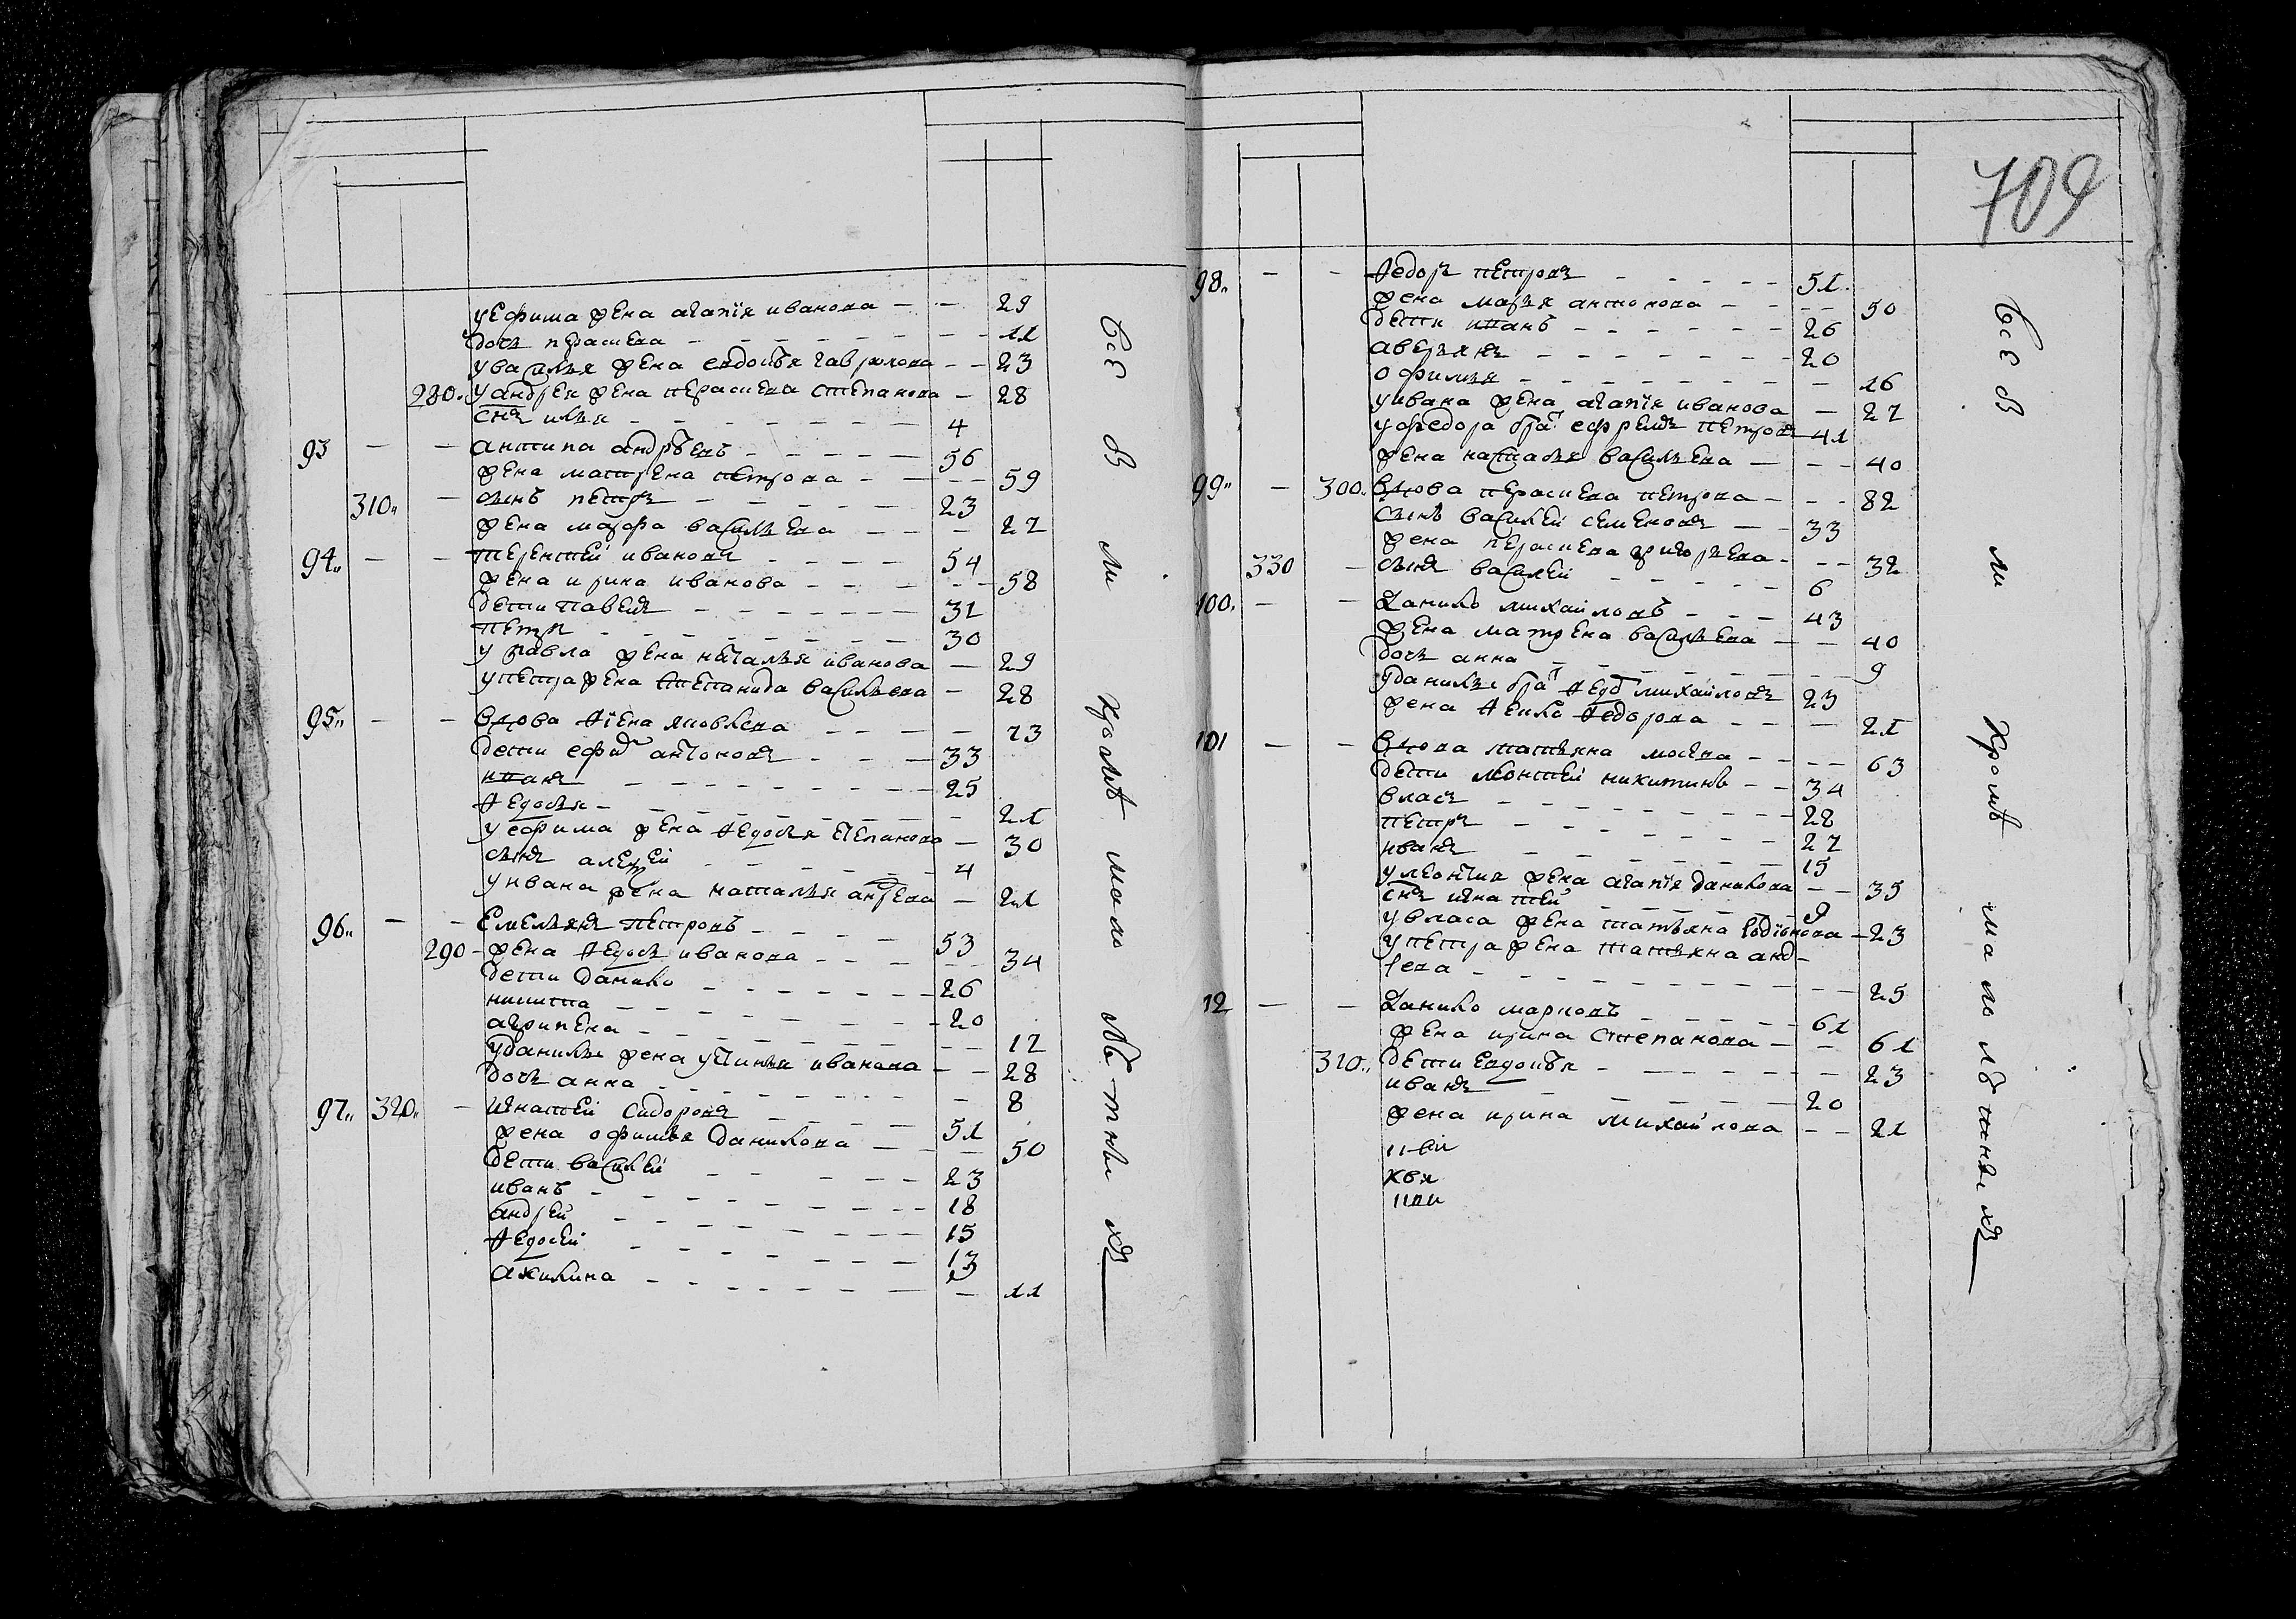 у ефима жена агапія иванова — — 29
дочь прасковя — 11
у василья жена евдокъя гаврилова — — 23
280. у андрея жена парасковя степанова — 28
снъ илья — 4
93 — — антипа андрѣевъ — 56
жена матрена петрова — 59
310. — сынъ петръ — 23
жена марфа васильева — 27
94. — — терентей ивановъ — 54
жена ирина иванова — 58
дети павелъ — 31
петръ — 30
у павла жена наталья иванова — 29
у петра жена степанида васильева — 28
95. — — вдова яковлева — 73
дети ефимъ антоновъ — 33
иванъ — 25
федосья — 21
у ефима жена федосья степанова — 30
сынъ алексей — 4
у ивана жена наталья андреева — 21
96. — — Емельянъ петровъ — 53
290 — жена федосья иванова — 34
дети данило — 26
никита — 20
агрипена — 17
у данилы жена устинья иванова — 28
дочь анна — 8
97. 320. — игнатей сидоровъ — 51
жена офимья данилова — 50
дети василей — 23
иванъ — 18
андрей — 15
федосей — 13
акилина — 11
все в ли кроме мало лѣтны хъ
709
98. — — федоръ петровъ — 51
жена марья антонова — 50
дети иванъ — 26
аверьянъ — 20
офимья — 16
у ивана жена агапія иванова — 27
у федора братъ ефремъ петровъ 41
жена наталья васильева — 40
99. — 300. вдова парасковя петрова — 82
сынъ василей семеновъ — 33
жена парасковя григорьева — 32
330 — сынъ василей — 6
100. — — данило михайловъ — 43
жена матрена васильева — 40
дочь анна — 9
у данилы братъ михайловъ 23
жена федорова — 21
101 — — вдова татьяна — 63
дети леонтей никитинъ — 34
власъ — 28
петръ — 27
иванъ — 15
у леонтия жена агапія данилова — 35
снъ игнатей — 9
у власа жена татьяна родіонова — 23
у петра жена татьяна анд-
реева — 25
12 — — данило марковъ — 61
жена ирина степанова — 61
310. дети евдокъя — 23
иванъ — 20
жена ирина михайлова — 21
все в ли кромѣ мало лѣтны хъ